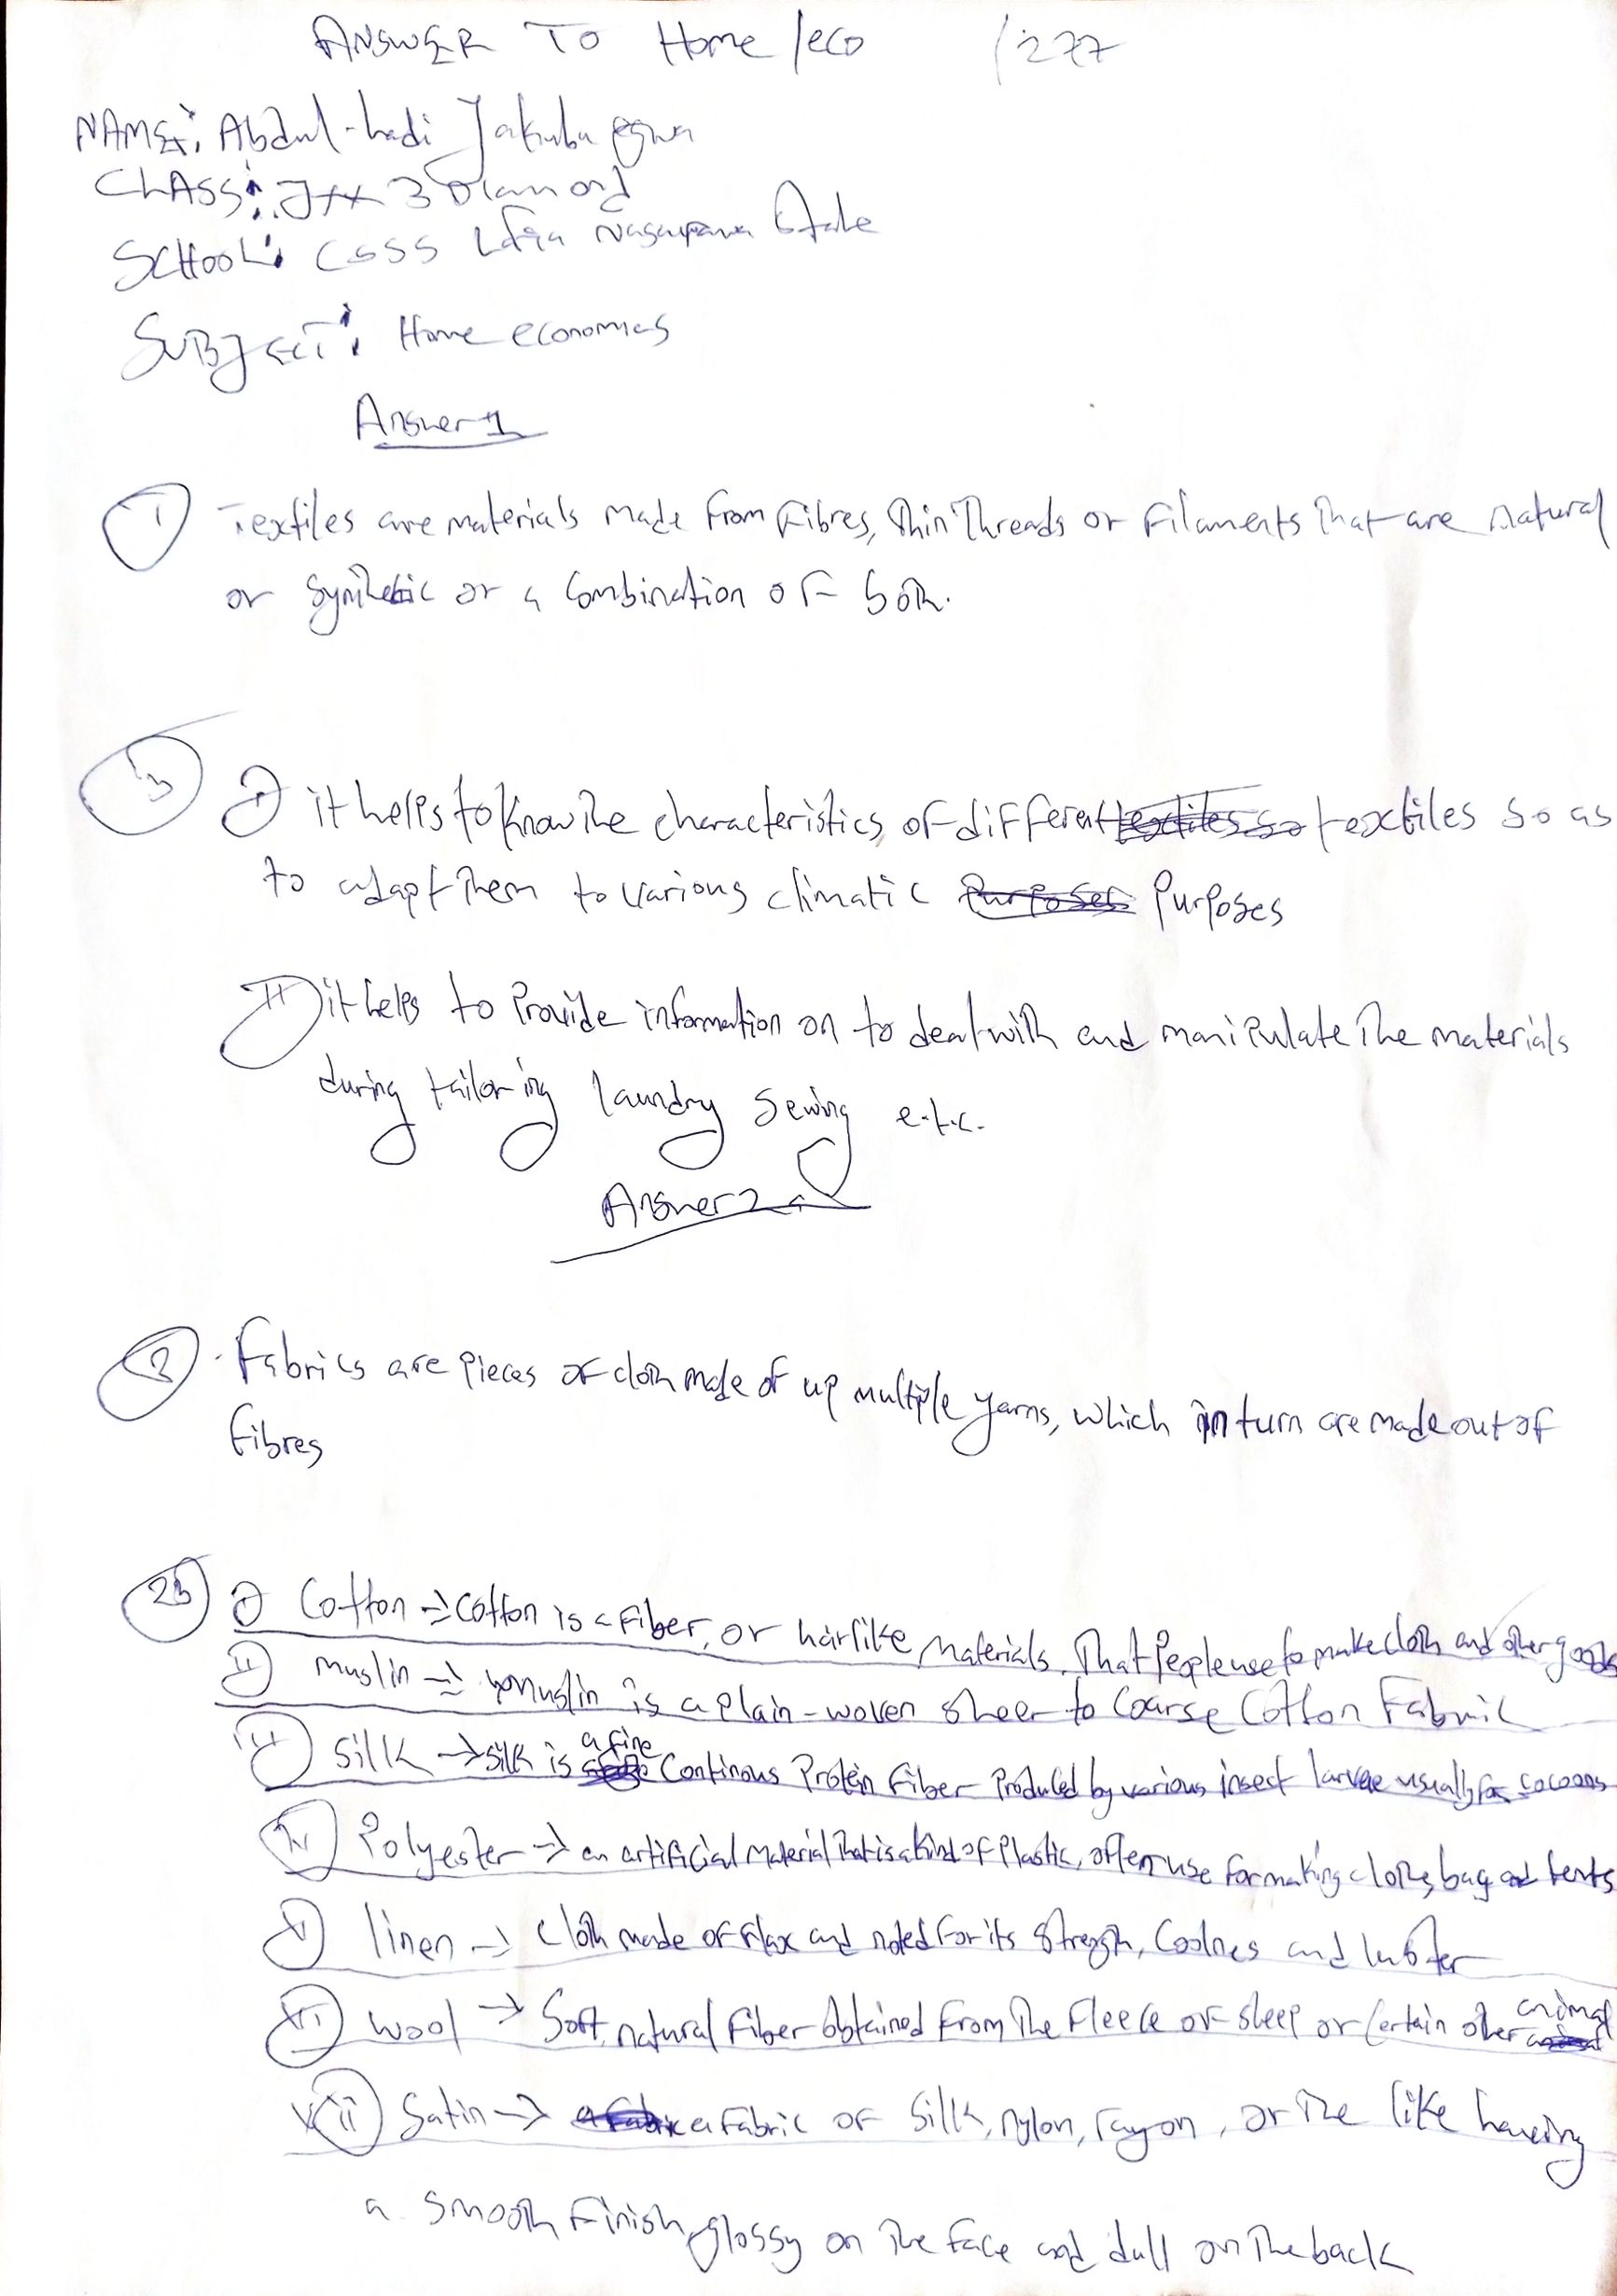 ANSWER TO Home/eco /277
NAME: Abdul-hadi Yakubu
CLASS: 3 Diamond
SCHOOL: CSSS Lafia Nasarawa State
SUBJECT: Home economics
Answer 1
1 Textiles are materials made from fibres, thin threads or filaments that are natural
or synthetic or a combination of both.
b I it helps to know the characteristics of different textiles so as
to adapt them to various climatic purposes
II it helps to provide information on to deal with and manipulate the materials
during tailoring laundry sewing e.t.c.
Answer 2
2 Fabrics are pieces of cloth made of up multiple yarns, which in turn are made out of
fibres
2b I Cotton → Cotton is a fiber, or hairlike materials, that people use to make cloth and other goods
II muslin → muslin is a plain-woven sheer to coarse cotton fabric
III silk → silk is a fine continous protein fiber produced by various insect larvae usually for cocoons
IV Polyester → an artificial material that is a kind of plastic, often use for making clothe, bag and tents
V linen → cloth made of flax and noted for its strength, coolnes and luster
VI wool → soft, natural fiber obtained from the fleece of sheep or certain other animal
VII Satin → a fabric of silk, nylon, rayon, or the like having
a smooth finish, glossy on the face and dull on the back